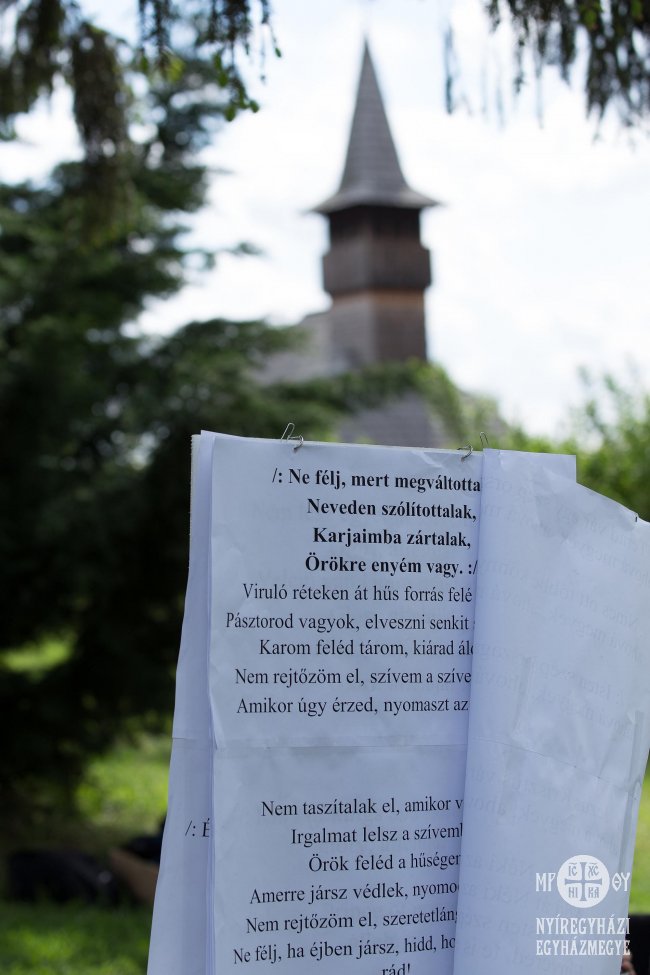 /: Ne félj, mert megváltotta
Neveden szólítottalak,
Karjaimba zártalak,
Örökre enyém vagy. :/
Viruló réteken át hűs forrás felé
Pásztorod vagyok, elveszni senkit
Karom feléd tárom, kiárad
Nem rejtőzöm el, szívem a
Amikor úgy érzed, nyomaszt az
Nem taszítalak el, amikor
Irgalmat lelsz a
/: É
Örök feléd a
Amerre jársz védlek,
Nem rejtőzöm el,
Ne félj, ha éjben jársz, hidd,
rád!
ΜΡ ΘΥ
IC XC
NI KA
NYÍREGYHÁZI
EGYHÁZMEGYE